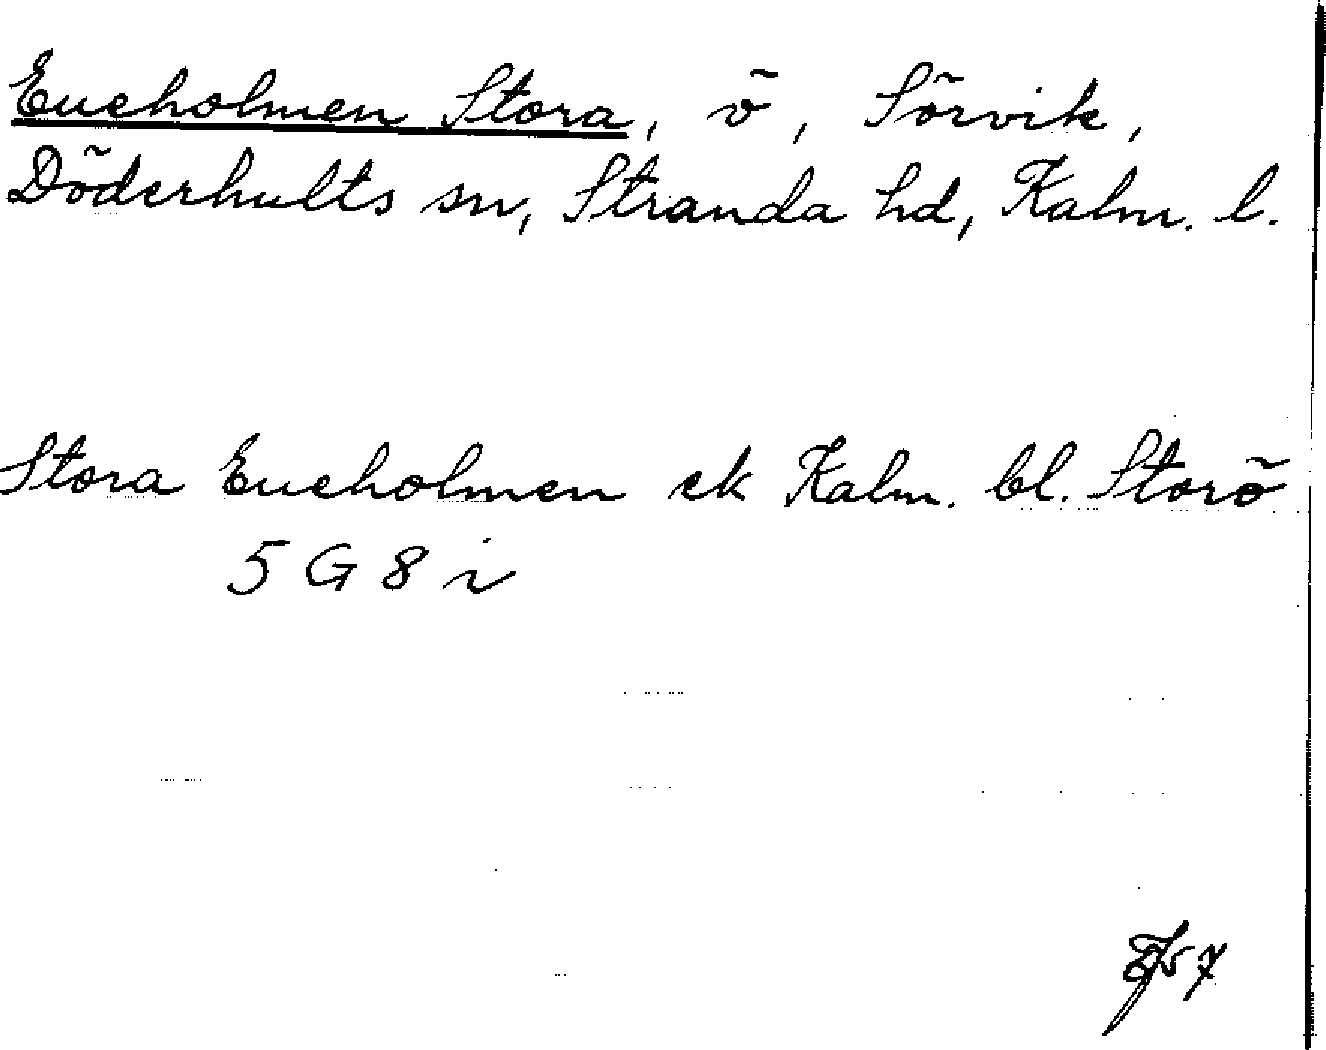 Eneholmen Stora, ö, Sörvik,
Döderhults sn, Stranda hd, Kalm. l.
Stora Eneholmen ek Kalm. bl. Storö
5 G 8 i